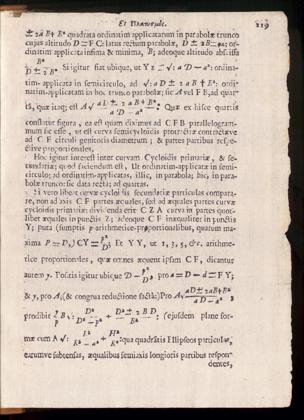 Et Planvsde.
219
± 2 a B + B² quadrata ordinatim applicatarum in parabolæ trunco
cujus altitudo D = F C: latus rectum parabolæ, D ± 2B
dinatim applicata infima & minima, B; adeoque altitudo abs
B²
D ± 2 B Si igitur fiat ubique, ut Y z
tim applicata in semicirculo, ad √: a D ± 2 a B + B²: ordi
natim-applicatam in hoc trunco parabolæ; sic A vel F B, ad quar
tā, quæ itaq; est A√ a D ± 2 a B + B² / a D − a² : Quæ ex hisce quartis
constituitur figura, ea est quam diximus ad C F B parallelogram
mum sic esse, ut est curva semicycloidis protractæ contractæve
ad C F circuli genitoris diametrum; & partes partibus respe
ctivè proportionales.
Hoc igitur interest inter curvam Cycloidis primariæ, & se
cundariæ; quod faciendum est, Ut ordinatim-applicatæ in semi
circulo; ad ordinatim-applicatas, illic, in parabola; hic, in para
bolæ trunco: sic data recta; ad quartas.
Si vero libeat curvæ cycloidis secundariæ particulas compara
re, non ad axis C F partes æquales, sed ad æquales partes curvæ
cycloidis primariæ: dividenda erit C Z A curva in partes quot
libet æquales in punctis Z; adeoque C F inæqualiter in punctis
Y; puta (sumptis p arithmetice-proportionalibus, quarum ma
xima P = D,) CY = p²/D; Et Y Y, ut 1, 3, 5, &c. arithme
tice proportionales, quæ omnes æquent ipsam C F, dicantur
aut rem y. Positis igitur ubique D − p²/D pro a = D − d = F Y;
& y, pro A; (& congrua reductione facta) Pro A√ a D ± 2 a B + B² / a D − a² ,
prodibit
(ejusdem plane for
mæ cum
quæ quadratis Ellipseos particulæ,
earumve subtensas, æqualibus semiaxis longioris partibus respon
dentes,